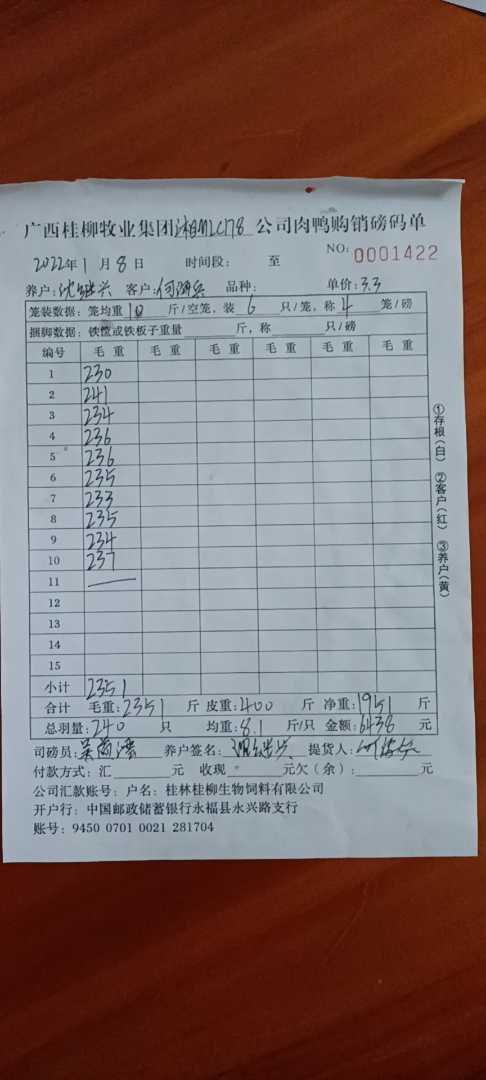 广西桂柳牧业集团湘M2C178公司肉鸭购销磅码单
NO: 0001422
2022年1月8日 时间段: 至
养户:沈继兴 客户:何湖兵 品种: 单价:3.3
笼装数据: 笼均重10斤/空笼, 装6只/笼, 称4笼/磅
捆脚数据: 铁筐或铁板子重量 斤, 称 只/磅
编号 毛重 毛重 毛重 毛重 毛重 毛重
1 230
2 241
3 234
4 236
5 236
6 235
7 233
8 235
9 234
10 237
11 —
12
13
14
15
小计 2351
合计 毛重:2351斤 皮重:400斤 净重:1951斤
总羽量:240只 均重:8.1斤/只 金额:6438元
司磅员: 养户签名: 提货人:
付款方式: 汇 元 收现 元欠(余): 元
公司汇款账号: 户名: 桂林桂柳生物饲料有限公司
开户行: 中国邮政储蓄银行永福县永兴路支行
账号: 9450 0701 0021 281704
①存根(白) ②客户(红) ③养户(黄)